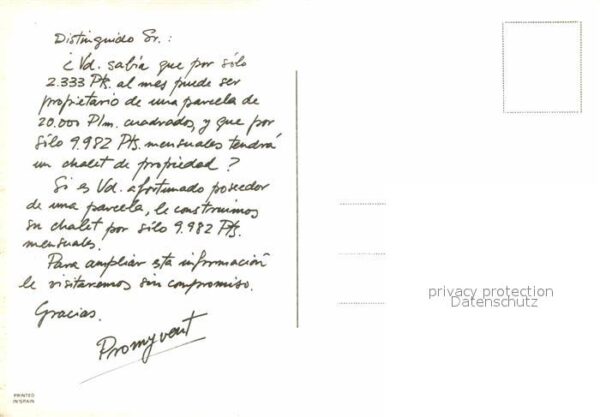 Distinguido Sr.:
¿Vd. sabía que por sólo
2.333 Pts. al mes puede ser
propietario de una parcela de
20.000 Plm. cuadrados, y que por
sólo 9.982 Pts. mensuales tendrá
un chalet de propiedad?
Si es Vd. afortunado poseedor
de una parcela, le construimos
su chalet por sólo 9.982 Pts.
mensuales.
Para ampliar esta información
le visitaremos sin compromiso.
Gracias.
Promyvent
PRINTED
IN SPAIN
privacy protection
Datenschutz